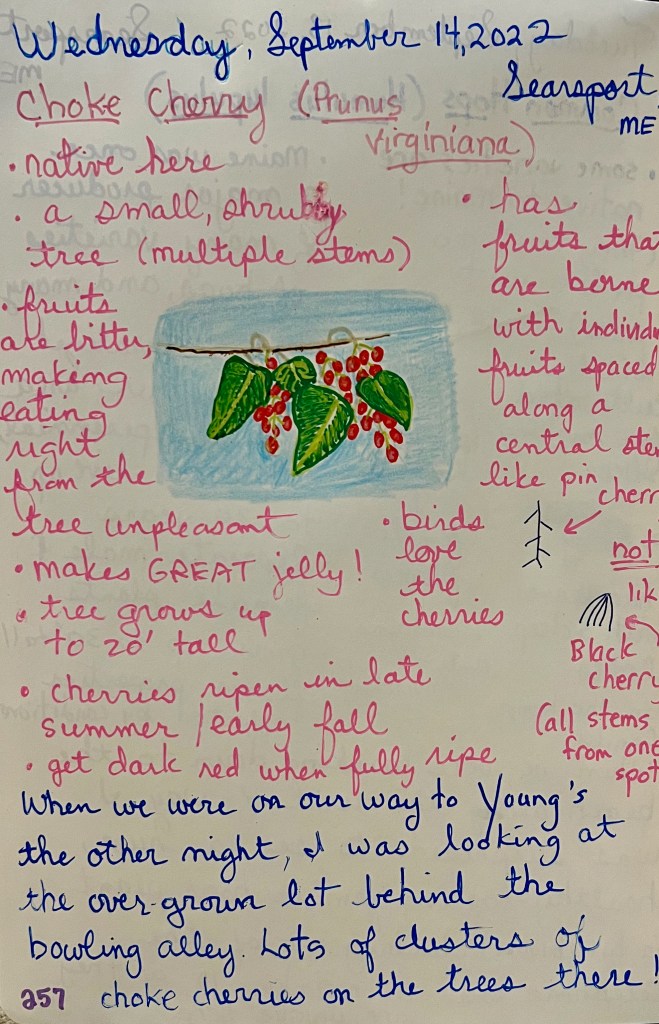 Wednesday, September 14, 2022
Searsport
ME
Choke Cherry (Prunus
virginiana)
• native here
• a small, shrubby
tree (multiple stems)
• fruits
are bitter,
making
eating
right
from the
tree unpleasant
• makes GREAT jelly!
• tree grows up
to 20' tall
• has
fruits that
are borne
with individ
fruits spaced
along a
central ste
like pin
cherr
• birds
love
the
cherries
not
lik
Black
cherry
(all stems
from one
spot
• cherries ripen in late
summer/early fall
• get dark red when fully ripe
When we were on our way to Young's
the other night, I was looking at
the over-grown lot behind the
bowling alley. Lots of clusters of
choke cherries on the trees there!
257